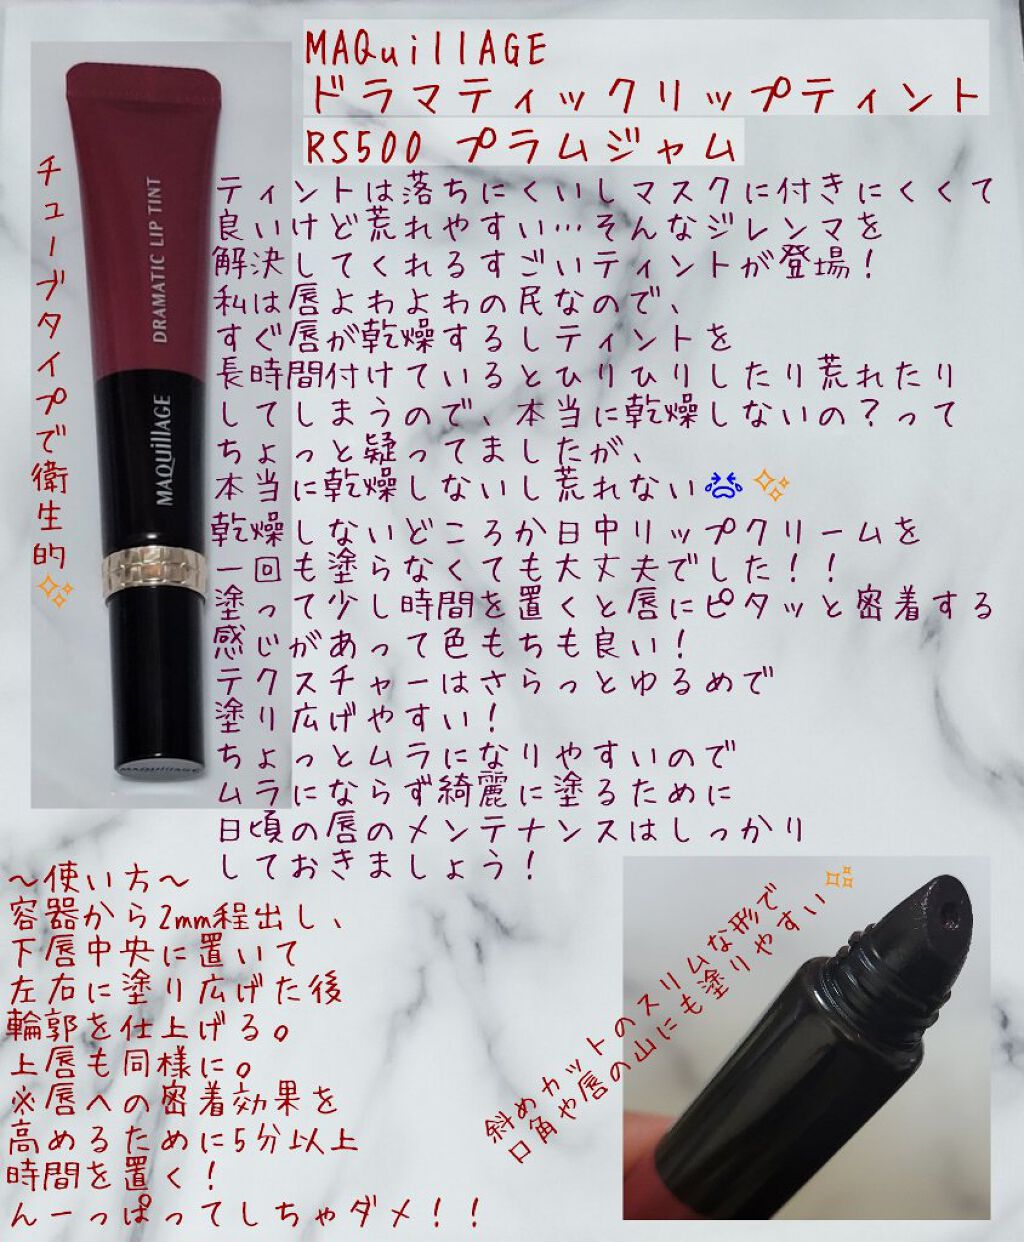 MAQuillAGE
ドラマティックリップティント
RS500 プラムジャム
チューブタイプで衛生的✨
DRAMATIC LIP TINT
MAQuillAGE
MAQuillAGE
ティントは落ちにくいしマスクに付きにくくて
良いけど荒れやすい…そんなジレンマを
解決してくれるすごいティントが登場！
私は唇よわよわの民なので、
すぐ唇が乾燥するしティントを
長時間付けているとひりひりしたり荒れたり
してしまうので、本当に乾燥しないの？って
ちょっと疑ってましたが、
本当に乾燥しないし荒れない😭✨
乾燥しないどころか日中リップクリームを
一回も塗らなくても大丈夫でした！！
塗って少し時間を置くと唇にピタッと密着する
感じがあって色もちも良い！
テクスチャーはさらっとゆるめで
塗り広げやすい！
ちょっとムラになりやすいので
ムラにならず綺麗に塗るために
日頃の唇のメンテナンスはしっかり
しておきましょう！
〜使い方〜
容器から2mm程出し、
下唇中央に置いて
左右に塗り広げた後
輪郭を仕上げる。
上唇も同様に。
※唇への密着効果を
高めるために5分以上
時間を置く！
んーっぱってしちゃダメ！！
斜めカットのスリムな形で
口角や唇の山にも塗りやすい✨